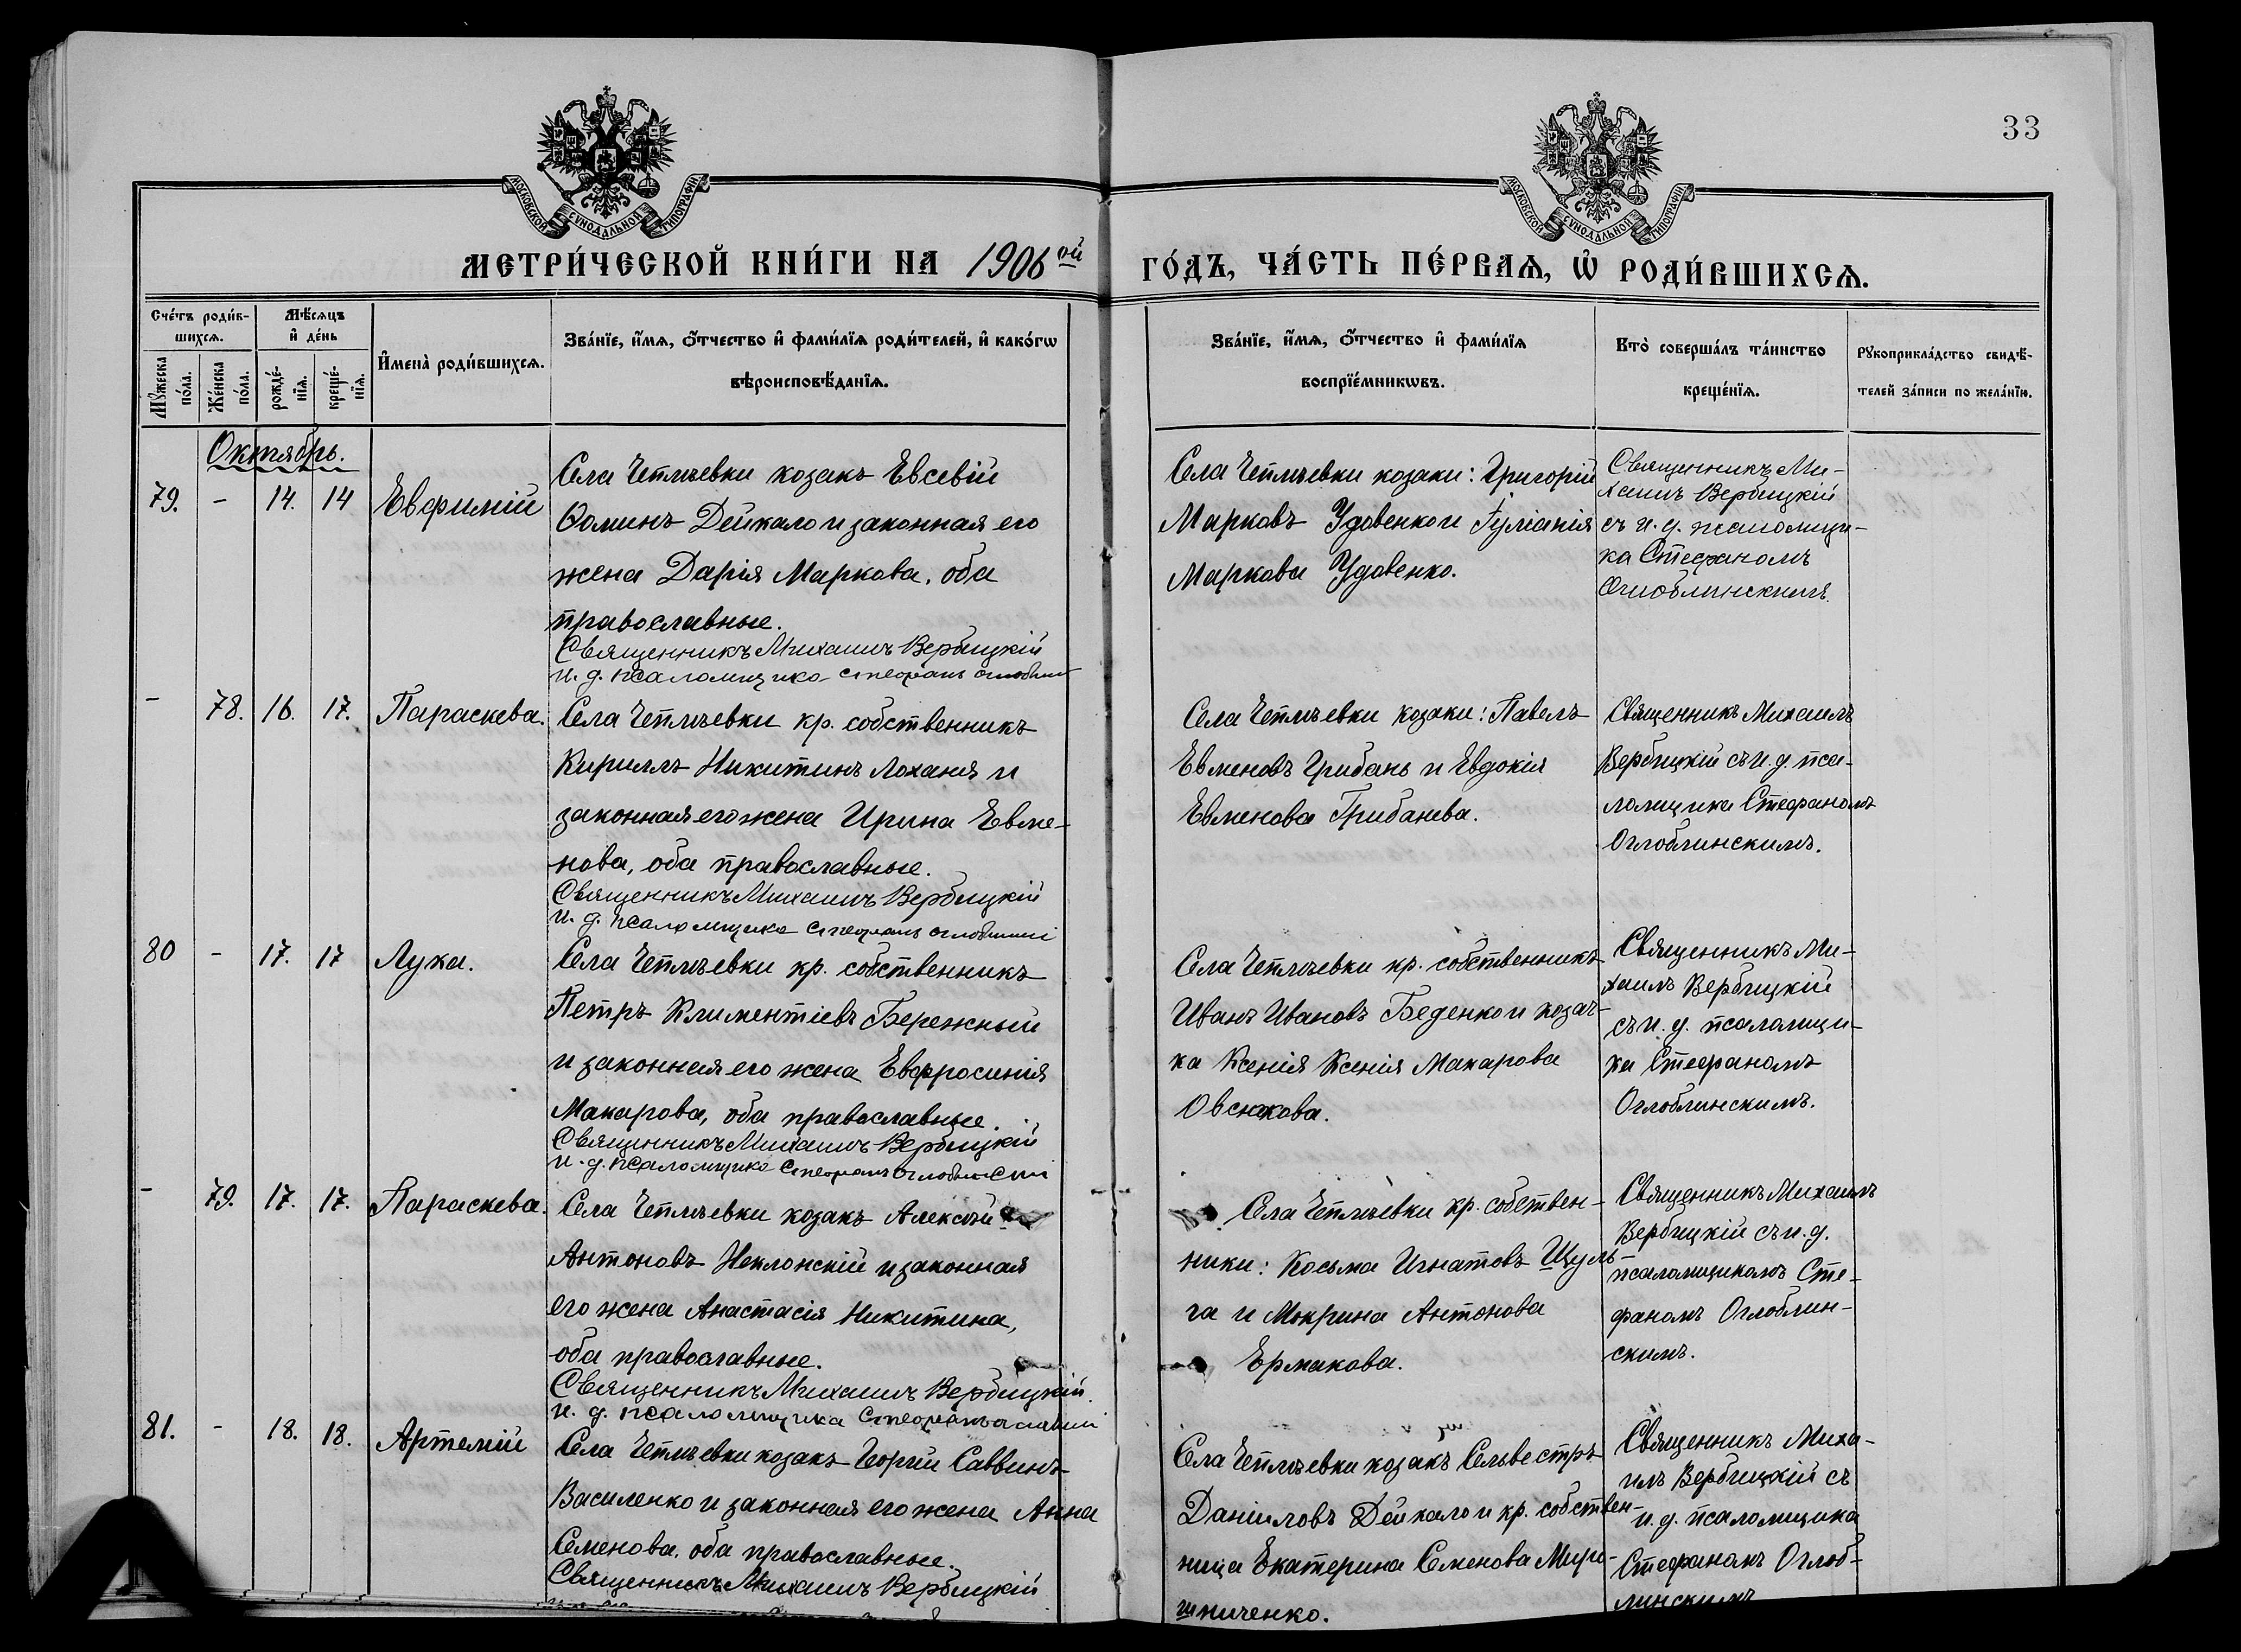 33
МОСКОВСКОЙ СѴНОДАЛЬНОЙ ТИПОГРАФІИ
МОСКОВСКОЙ СѴНОДАЛЬНОЙ ТИПОГРАФІИ
МЕТРИ́ЧЕСКОЙ КНИ́ГИ НА 1906ой ГО́ДЪ, ЧА́СТЬ ПЕ́РВАѦ, Ѡ҆ РОДИ́ВШИХСѦ.
Сче́тъ роди́в-
шихсѧ.
Мѣ́сѧцъ
и҆ де́нь
Мꙋ́жеска
по́ла.
Же́нска
по́ла.
рожде́-
нїѧ.
креще́-
нїѧ.
И҆мена̀ роди́вшихсѧ.
Зва́нїе, и҆́мѧ, ѻ҆́тчество и҆ фами́лїѧ роди́телей, и҆ како́гѡ
вѣроисповѣ́данїѧ.
Зва́нїе, и҆́мѧ, ѻ҆́тчество и҆ фами́лїѧ
воспрїе́мникѡвъ.
Кто̀ соверша́лъ та́инство
креще́нїѧ.
Рꙋкоприкла́дство свидѣ́-
телей за́писи по жела́нїю.
Октябрь.
79. - 14. 14 Евфимій
Села Чепмѣевки козакъ Евсевій
Ѳоминъ Дейкало и законная его
жена Дарія Маркова, оба
православные.
Священникъ Михаилъ Вербицкій
и. д. псаломщика Стефанъ
Села Чепмѣевки козаки: Григорій
Марковъ Удовенко и Іуліанія
Маркова Удовенко.
Священникъ Ми-
хаилъ Вербицкій
съ и. д. псаломщи-
ка Стефаномъ
Оглоблинскимъ.
- 78. 16. 17. Параскева.
Села Чепмѣевки кр. собственникъ
Кириллъ Никитинъ Лоханя и
законная его жена Ирина Евме-
нова, оба православные.
Священникъ Михаилъ Вербицкій
и. д. псаломщика Стефанъ
Села Чепмѣевки козаки: Павелъ
Евменовъ Грибань и Евдокія
Евменова Грибанева.
Священникъ Михаилъ
Вербицкій съ и. д. пса-
ломщика Стефаномъ
Оглоблинскимъ.
80 - 17. 17 Лука.
Села Чепмѣевки кр. собственникъ
Петръ Климентіевъ Бережный
и законная его жена Евфросинія
Макарова, оба православные.
Священникъ Михаилъ Вербицкій
и. д. псаломщика Стефанъ
Села Чепмѣевки кр. собственникъ
Иванъ Ивановъ Беденко и козач-
ка Ксенія Ксенія Макарова
Овсюкова.
Священникъ Ми-
хаилъ Вербицкій
съ и. д. псаломщи-
ка Стефаномъ
Оглоблинскимъ.
- 79. 17. 17. Параскева.
Села Чепмѣевки козакъ Алексѣй
Антоновъ Неклонскій и законная
его жена Анастасія Никитина,
оба православные.
Священникъ Михаилъ Вербицкій
и. д. псаломщика Стефанъ
Села Чепмѣевки кр. собствен-
ники: Косьма Игнатовъ Шуль-
га и Мокрина Антонова
Ермакова.
Священникъ Михаилъ
Вербицкій съ и. д.
псаломщикомъ Сте-
фаномъ Оглоблин-
скимъ.
81. - 18. 18. Артемій
Села Чепмѣевки козакъ Георгій Саввинъ
Василенко и законная его жена Анна
Семенова, оба православные.
Священникъ Михаилъ Вербицкій
Села Чепмѣевки козакъ Сельвестръ
Даніиловъ Дейкало и кр. собствен-
ница Екатерина Семенова Миро-
шниченко.
Священникъ Миха-
илъ Вербицкій съ
и. д. псаломщика
Стефаномъ Оглоб-
линскимъ